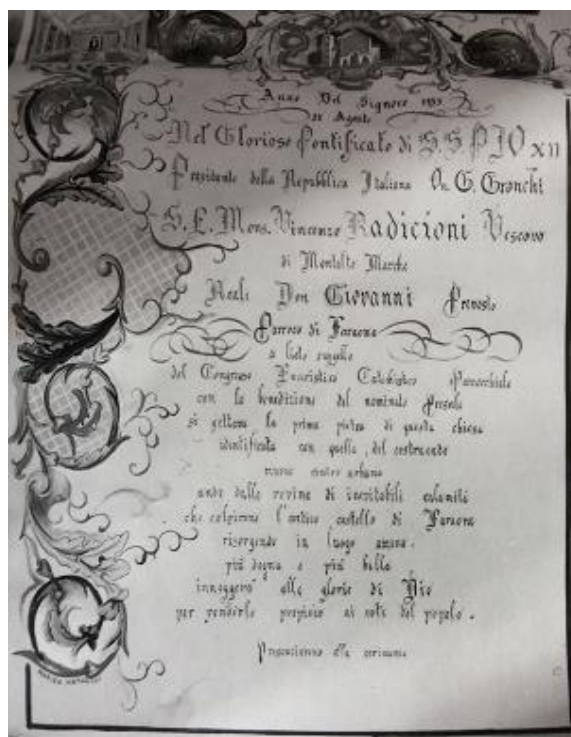 Anno Del Signore 1955
Agosto
Nel Glorioso Pontificato di S.S PIO XII
Presidente della Repubblica Italiana On. G. Gronchi
S.E. Mons. Vincenzo Radicioni Vescovo
di Montalto Marche
Reali Don Giovanni Prevosto
Parroco di Faraona
a lieto suggello
del Congresso Eucaristico Catechistico Parrocchiale
con la benedizione del nominato Presule
si gettava la prima pietra di questa chiesa
identificata con quella, del costruendo
nuovo centro urbano
onde dalle rovine di inevitabili calamità
che colpirono l'antico castello di Faraona
risorgendo in luogo ameno.
più degna e più bella
inneggerà alle glorie di Dio
per renderlo propizio ai voti del popolo.
Presenziarono alla cerimonia